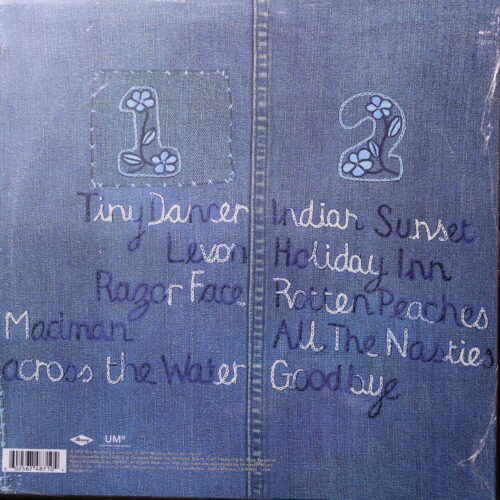 1
Tiny Dancer
Levon
Razor Face
Madman
across the Water
2
Indian Sunset
Holiday Inn
Rotten Peaches
All The Nasties
Goodbye
UMe